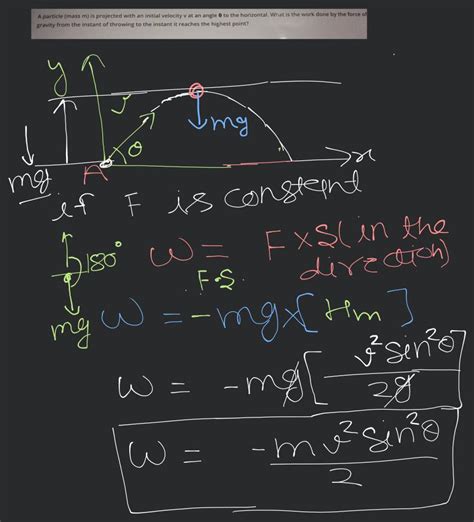 A particle (mass m) is projected with an initial velocity v at an angle θ to the horizontal. What is the work done by the force of
gravity from the instant of throwing to the instant it reaches the highest point?
y
v
mg
θ
x
mg
A
if F is constant
180°
W = F×S (in the
direction)
F·S
mg
W = -mg×[Hm]
W = -mg[v²sin²θ/2g
W = -mv²sin²θ/2